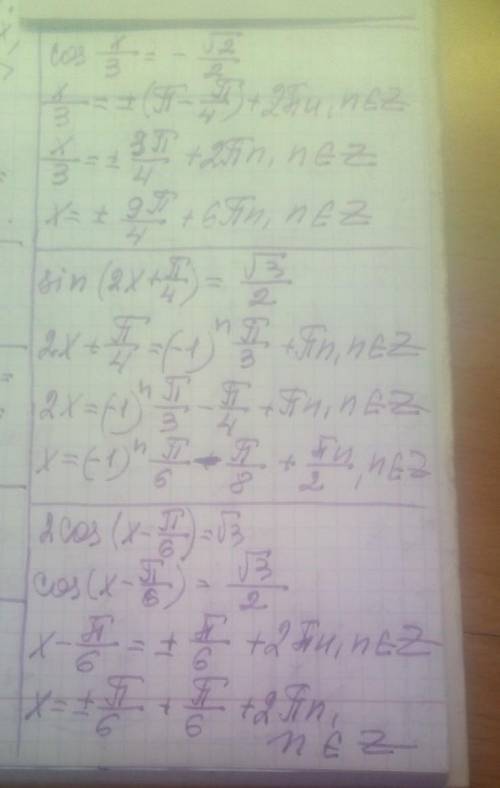 cos x/3 = - √2/2
x/3 = ±(π - π/4) + 2πn, n∈Z
x/3 = ± 3π/4 + 2πn, n∈Z
x = ± 9π/4 + 6πn, n∈Z
sin(2x + π/4) = √3/2
2x + π/4 = (-1)ⁿ π/3 + πn, n∈Z
2x = (-1)ⁿ π/3 - π/4 + πn, n∈Z
x = (-1)ⁿ π/6 - π/8 + πn/2, n∈Z
2cos(x - π/6) = √3
cos(x - π/6) = √3/2
x - π/6 = ± π/6 + 2πn, n∈Z
x = ± π/6 + π/6 + 2πn,
n∈Z